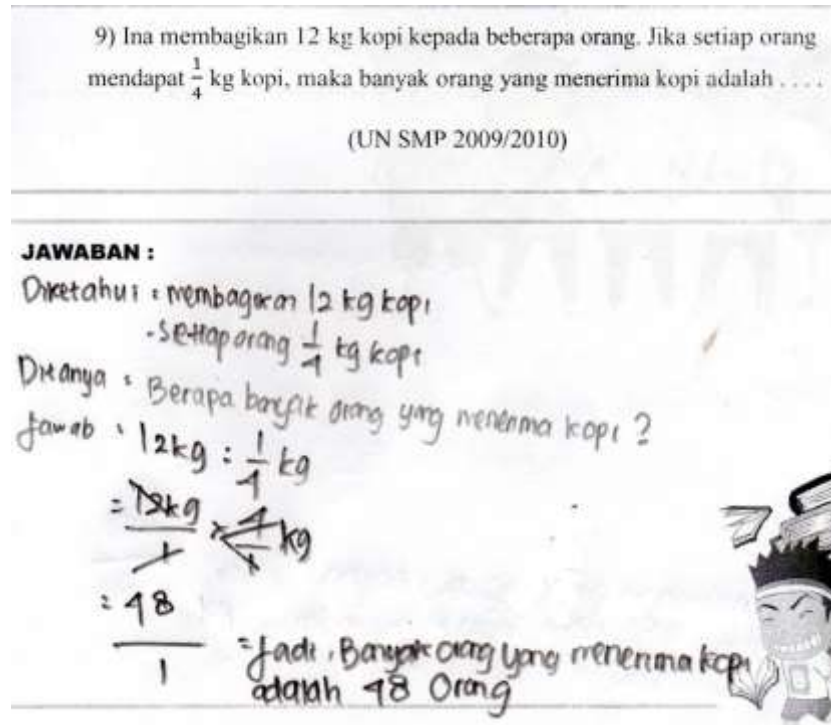 9) Ina membagikan 12 kg kopi kepada beberapa orang. Jika setiap orang
mendapat 1/4 kg kopi, maka banyak orang yang menerima kopi adalah . . . .
(UN SMP 2009/2010)
JAWABAN :
Diketahui : membagikan 12 kg kopi
- Setiap orang 1/4 kg kopi
Ditanya : Berapa banyak orang yang menerima kopi ?
Jawab : 12kg : 1/4 kg
= 12kg/1 × 4/1 kg
= 48/1 = Jadi, Banyak orang yang menerima kopi
adalah 48 Orang